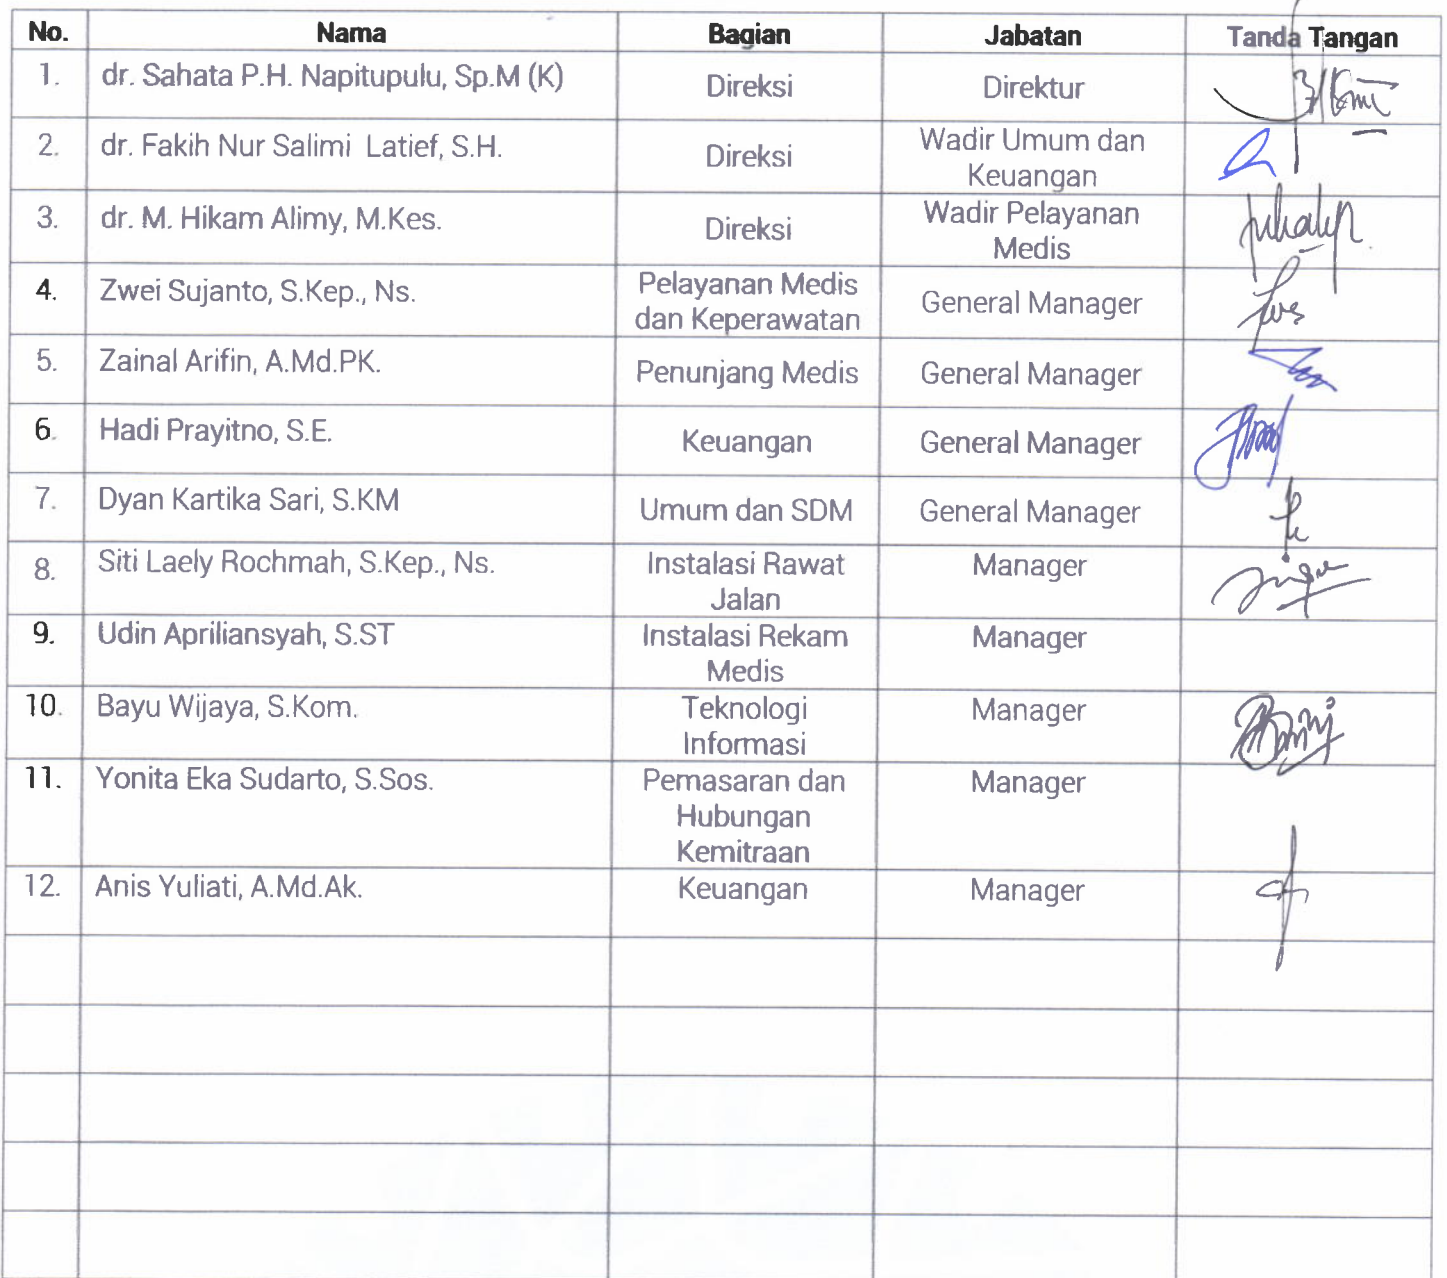 No. Nama Bagian Jabatan Tanda Tangan
1. dr. Sahata P.H. Napitupulu, Sp.M (K) Direksi Direktur
2. dr. Fakih Nur Salimi Latief, S.H. Direksi Wadir Umum dan
Keuangan
3. dr. M. Hikam Alimy, M.Kes. Direksi Wadir Pelayanan
Medis
4. Zwei Sujanto, S.Kep., Ns. Pelayanan Medis
dan Keperawatan General Manager
5. Zainal Arifin, A.Md.PK. Penunjang Medis General Manager
6. Hadi Prayitno, S.E. Keuangan General Manager
7. Dyan Kartika Sari, S.KM Umum dan SDM General Manager
8. Siti Laely Rochmah, S.Kep., Ns. Instalasi Rawat Manager
Jalan
9. Udin Apriliansyah, S.ST Instalasi Rekam Manager
Medis
10. Bayu Wijaya, S.Kom. Teknologi Manager
Informasi
11. Yonita Eka Sudarto, S.Sos. Pemasaran dan Manager
Hubungan
Kemitraan
12. Anis Yuliati, A.Md.Ak. Keuangan Manager